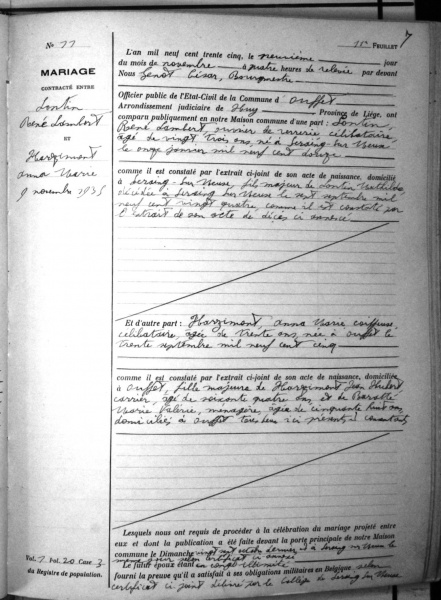 No 11
11e FEUILLET 7
MARIAGE
CONTRACTÉ ENTRE
Lontin
René Lambert
ET
Harzimont
Anna Marie
9 novembre 1935
L'an mil neuf cent trente cinq, le neuvième jour
du mois de novembre à quatre heures de relevée par devant
Nous Genot César, Bourgmestre
Officier public de l'Etat-Civil de la Commune d' Ouffet
Arrondissement judiciaire de Huy Province de Liège, ont
comparu publiquement en notre Maison commune d'une part : Lontin,
René Lambert, ouvrier de verrerie, célibataire,
âgé de vingt trois ans, né à Seraing-sur-Meuse
le onze janvier mil neuf cent douze
comme il est constaté par l'extrait ci-joint de son acte de naissance, domicilié
à Seraing-sur-Meuse, fils majeur de Lontin Mathilde
décédée à Seraing-sur-Meuse le sept septembre mil
neuf cent vingt quatre, comme il est constaté par
l'extrait de son acte de décès ci annexé
Et d'autre part : Harzimont, Anna Marie, coiffeuse,
célibataire, âgée de trente ans, née à Ouffet le
trente septembre mil neuf cent cinq
comme il est constaté par l'extrait ci-joint de son acte de naissance, domiciliée
à Ouffet, fille majeure de Harzimont Jean Hubert
carrier, âgé de soixante quatre ans, et de
Marie Valérie, ménagère, âgée de cinquante huit ans,
domiciliés à Ouffet tous deux ici présents et consentants
Lesquels nous ont requis de procéder à la célébration du mariage projeté entre
eux et dont la publication a été faite devant la porte principale de notre Maison
commune le Dimanche vingt sept octobre dernier et à Seraing sur Meuse le
même jour selon certificat ci annexé
Le futur époux étant en congé illimité
fourni la preuve qu'il a satisfait à ses obligations militaires en Belgique, selon
certificat ci joint délivré par le Collège de Seraing sur Meuse
Vol. 7 Fol. 20 Case 3
du Registre de population.